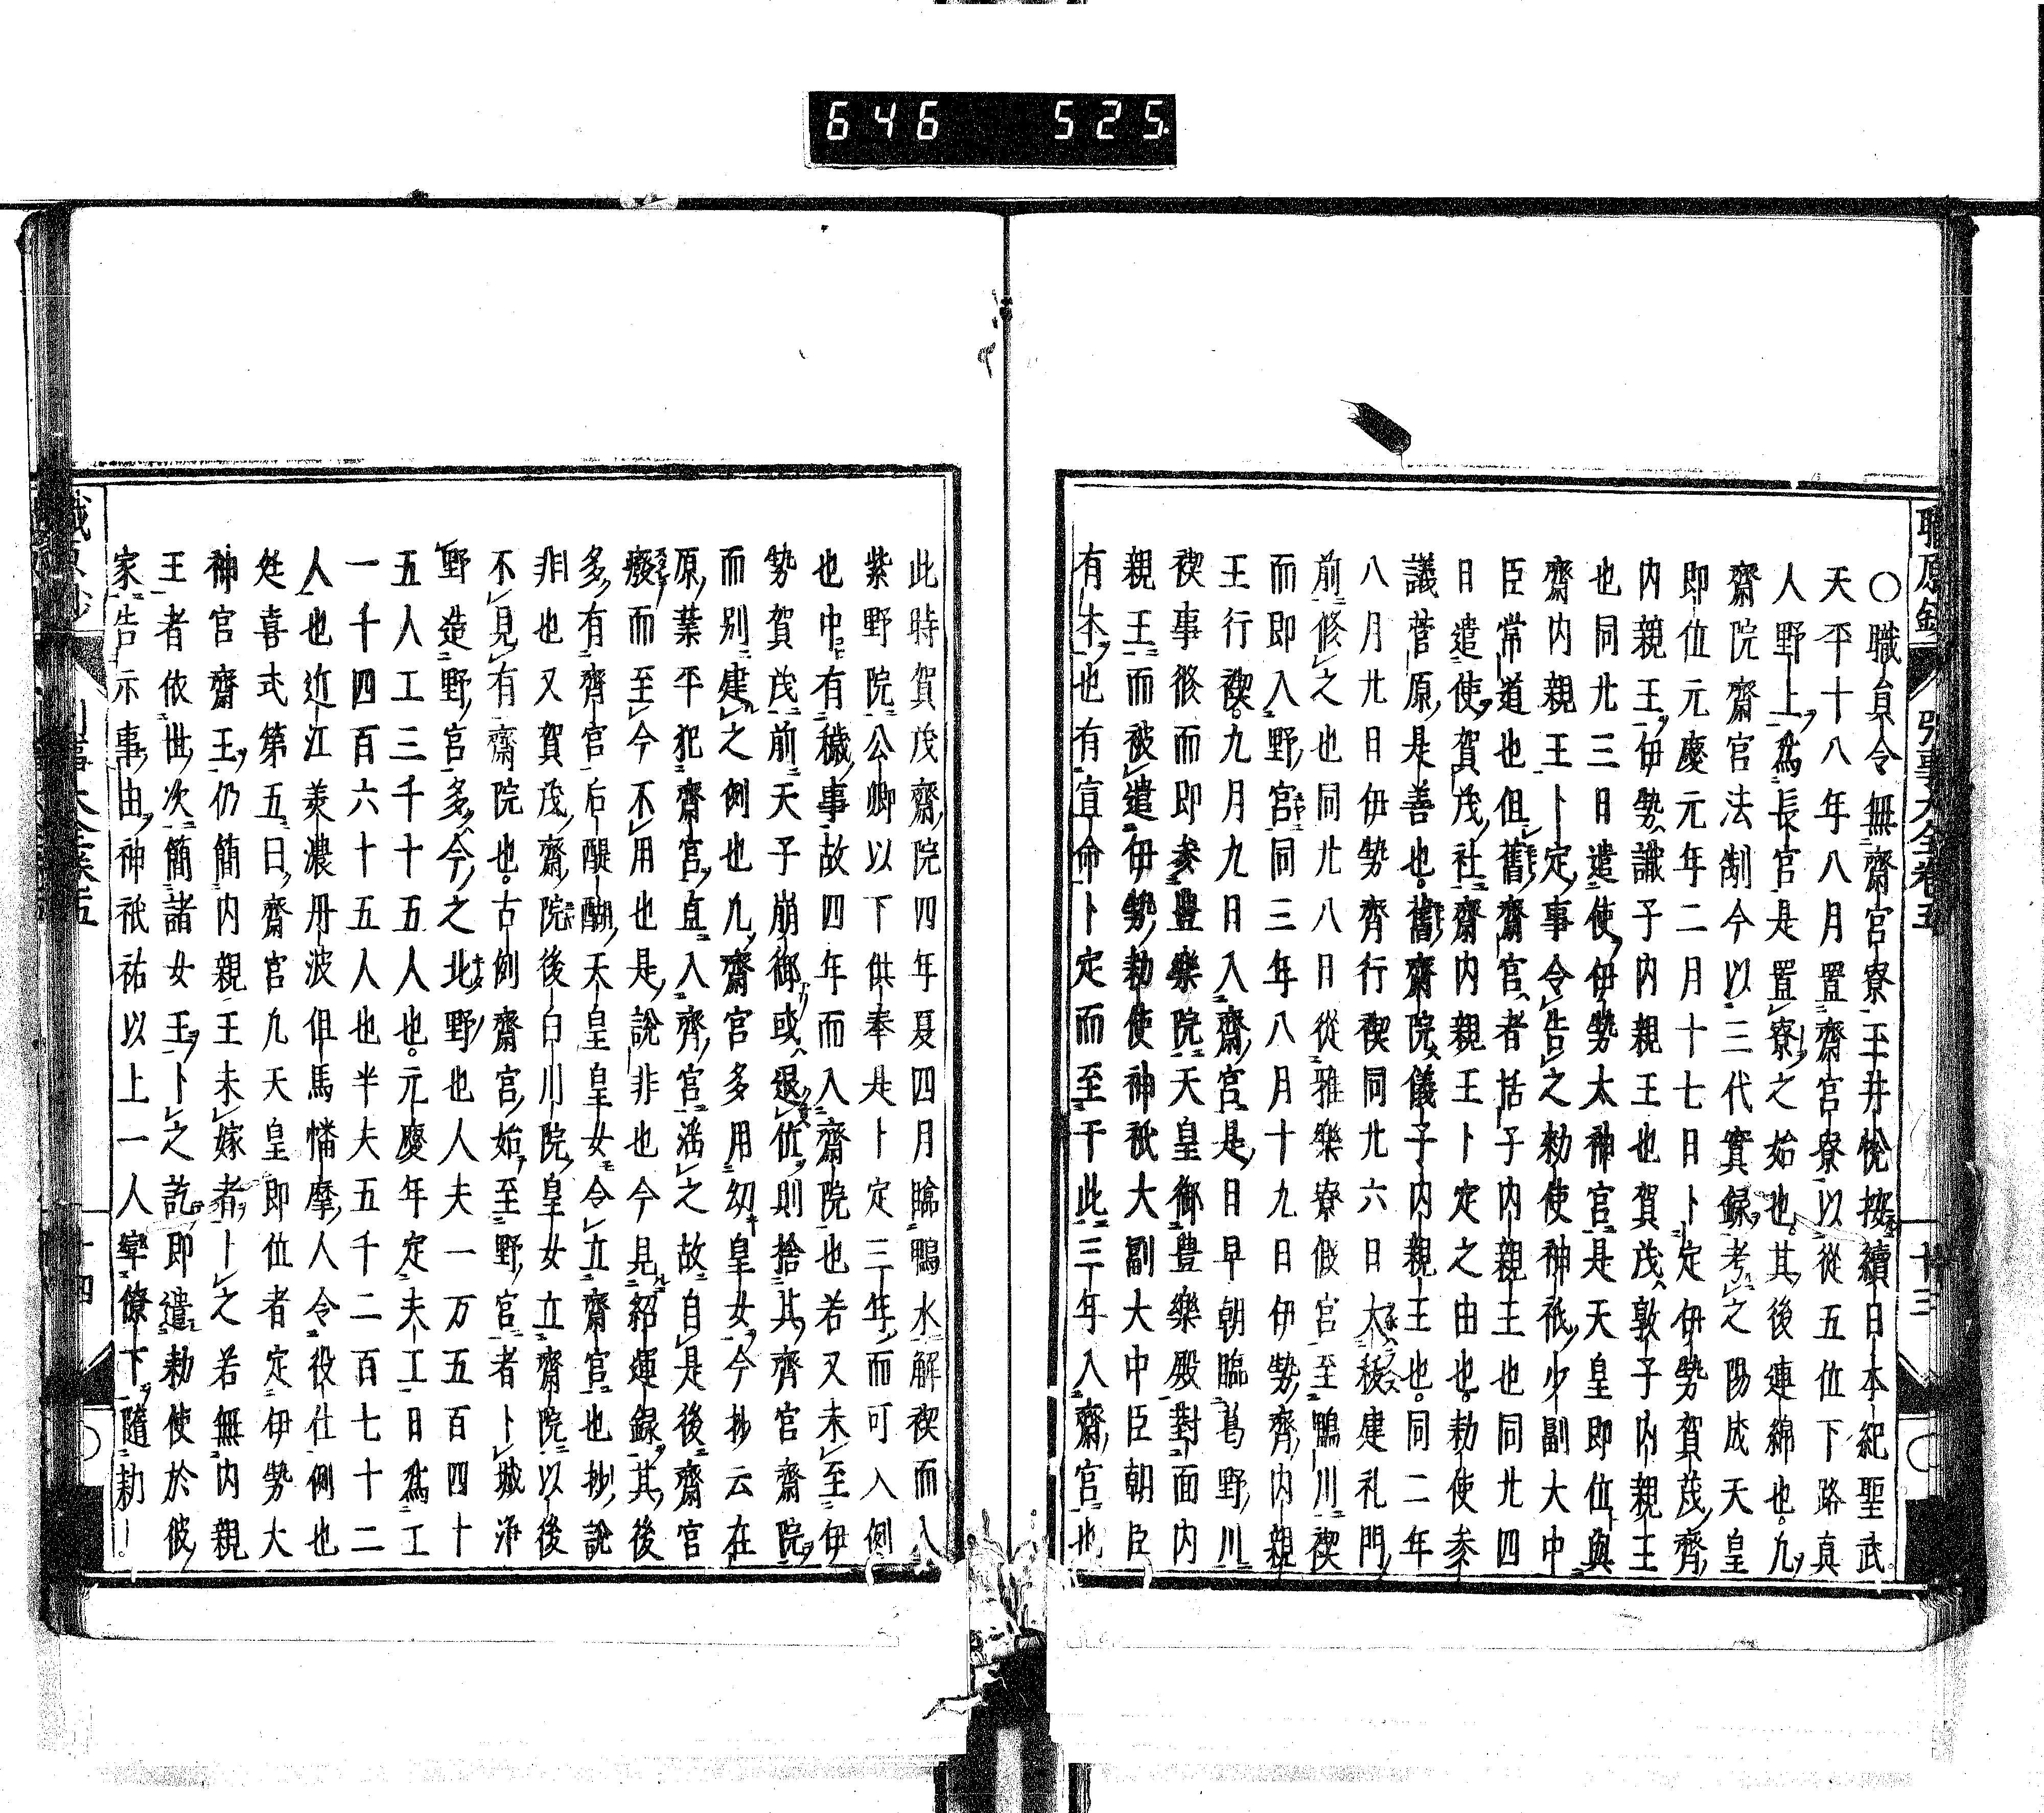 646 525
職原鈔 引事大全卷五 十三
〇職員令無齋宮寮王井悅按續日本紀聖武
天平十八年八月置齋宮寮以從五位下路真
人野上爲長官是置寮之始也其後連綿也凢
齋院齋宮法制今以三代實録考之陽成天皇
即位元慶元年二月十七日卜定伊勢賀茂齊
内親王伊勢識子内親王也賀茂敦子内親王
也同廿三日遣使伊勢太神宮是天皇即位與
齋内親王卜定事令告之勑使神祇少副大中
臣常道也但舊齋宮者括子内親王也同廿四
日遣使賀茂社齋内親王卜定之由也勑使参
議菅原是善也舊齋院儀子内親王也同二年
八月廿日伊勢齊行禊同廿六日大祓建礼門
前修之也同廿八日從雅樂寮假宮至鴨川禊
而即入野宮同三年八月十九日伊勢齊内親
王行禊九月九日入齋宮是日早朝臨葛野川
禊事修而即参豊樂院天皇御豊樂殿對面内
親王而被遣伊勢勑使神祇大副大中臣朝臣
有本也有宣命卜定而至于此三年入齋宮也
此時賀茂齋院四年夏四月臨鴨水解禊而入
紫野院公卿以下供奉是卜定三年而可入側
也中有穢事故四年而入齋院也若又未至伊
勢賀茂前天子崩御或退位則捨其齊宮齋院
而別建之例也凢齋宮多用幼皇女今抄云在
原業平犯齋宮直入齊宮滛之故自是後齋宮
癈而至今不用也是說非也今見紹運録其後
多有齊宮后醍醐天皇皇女令立齋宮也抄說
非也又賀茂齋院後白川院皇女立齋院以後
不見有齋院也古例齋宮始至野宮者卜城浄
野造野宮多今之北野也人夫一万五百四十
五人工三千十五人也元慶年定夫工日爲工
一千四百六十五人也半夫五千二百七十二
人也近江羙濃丹波但馬幡摩人令役仕例也
延喜式第五曰齋宮凢天皇即位者定伊勢大
神宮齋王仍簡内親王未嫁者卜之若無内親
王者依世次簡諸女王卜之訖即遣勑使於彼
家告示事由神祇祐以上一人率僚下隨勑